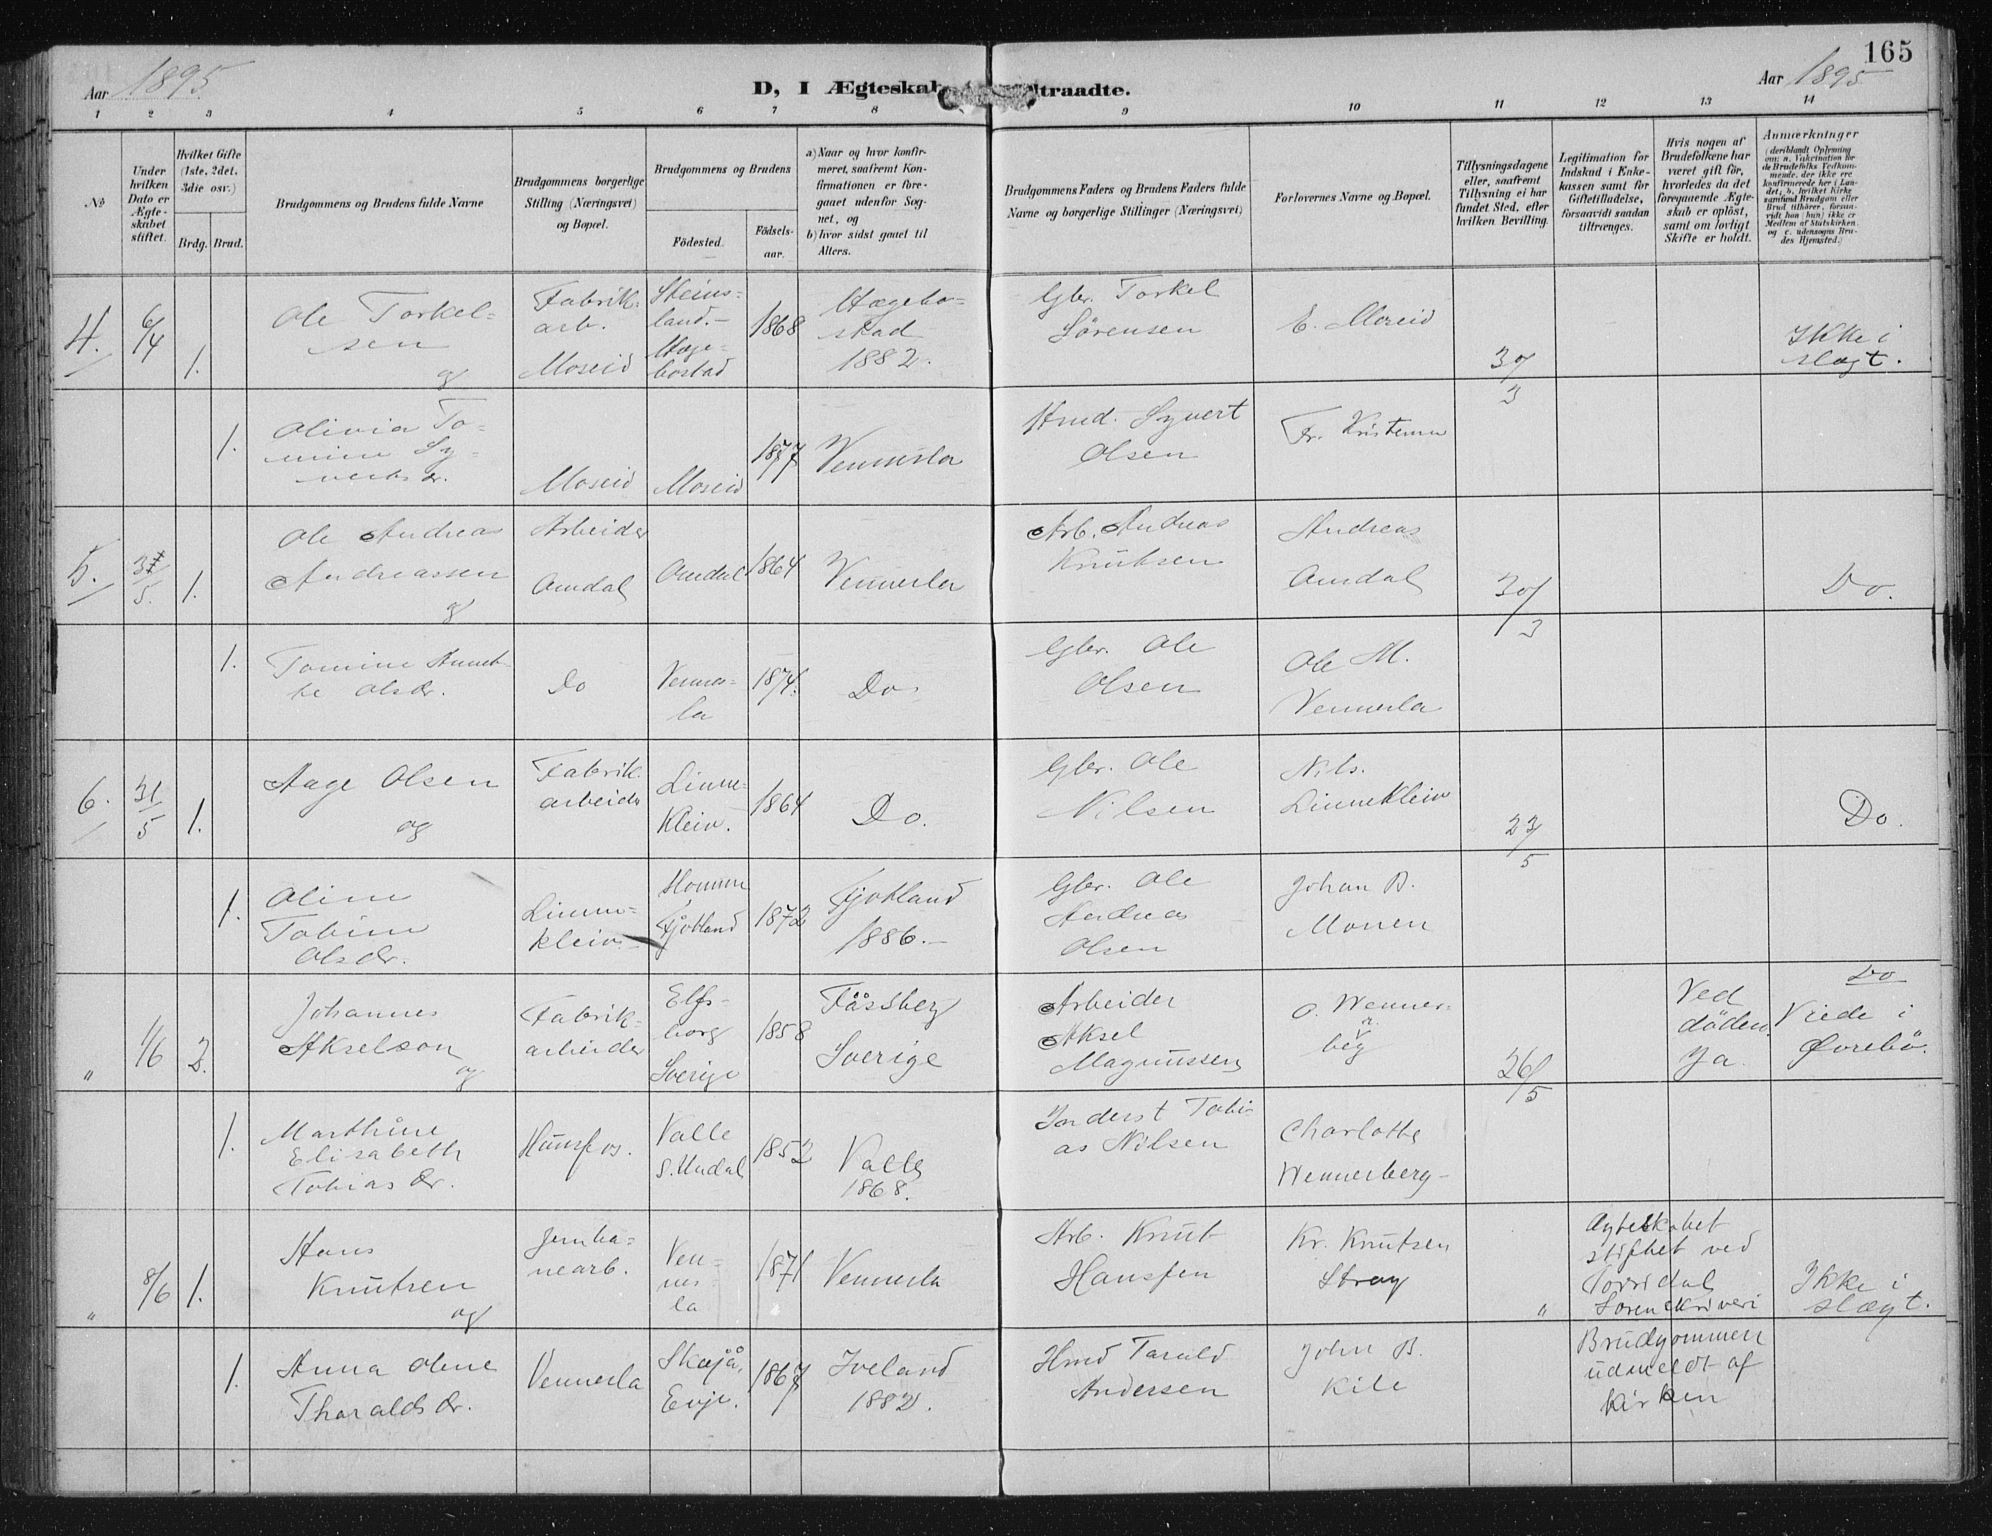 165
Aar 1895
D, I Ægteskab traadte.
Aar 1895
1 2 3 4 5 6 7 8 9 10 11 12 13 14
No
Under hvilken Dato er Ægteskabet stiftet.
Hvilket Gifte (1ste, 2det, 3die osv.)
Brdg. Brud.
Brudgommens og Brudens fulde Navne
Brudgommens borgerlige Stilling (Næringsvei) og Bopæl.
Brudgommens og Brudens
Fødested.
Fødselsaar.
a) Naar og hvor konfirmeret, saafremt Konfirmationen er foregaaet udenfor Sognet, og
b) hvor sidst gaaet til Alters.
Brudgommens Faders og Brudens Faders fulde Navne og borgerlige Stillinger (Næringsvei)
Forlovernes Navne og Bopæl.
Tillysningsdagene eller, saafremt Tillysning ei har fundet Sted, efter hvilken Bevilling.
Legitimation for Indskud i Enkekassen samt for Giftetilladelse, forsaavidt saadan tiltrænges.
Hvis nogen af Brudefolkene har været gift før, hvorledes da det foregaaende Ægteskab er opløst, samt om lovligt Skifte er holdt.
Anmærkninger
(deriblandt Oplysning om: a. Vakcination for de Brudefolks Vedkommende, der ikke ere konfirmerede her i Landet, b. hvilket Kirkesamfund Brudgom eller Brud tilhører, forsaavidt han (hun) ikke er Medlem af Statskirken, og c. udensogns Brudes Hjemsted.)
4. 6/4 1. Ole Torkelsen og
Fabrikarb. Moseid
Steinsland. Hægebostad
1868
Hægebostad 1882.
Gbr. Torkel Sörensen
E. Moseid
30/3
Ikke i slægt.
1. Olivia Tomine Syvertsdr.
Moseid
Moseid
1877
Vennesla
Hmd. Syvert Olsen
Fr. Kristensen
5. 31/5. 1. Ole Andreas Andreassen og
Arbeider Omdal
Omdal
1864
Vennesla
Arb. Andreas Knutsen
Andreas Omdal
30/3
Do.
1. Tomine Annethe Olsdr.
Do
Vennesla
1874.
Do
Gbr. Ole Olsen
Ole M. Vennesla
6. 31/5 1. Aage Olsen og
Fabrikarbeider
Linnekleiv.
1864
Do.
Gbr. Ole Nilsen
Nils. Linnekleiv
23/5
Do.
1. Oline Tobine Olsdr.
Linnekleiv
Homme Fjotland
1872
Fjotland 1886.
Gbr. Ole Andreas Olsen
Johan B. Monen
Do
" 1/6 2. Johannes Akselson og
Fabrikarbeider
Elfsborg Sverige
1858
Fåssberg Sverige
Arbeider Aksel Magnussen
O. Wennerbeg
26/5
Ved döden. Ja.
Viede i Øvrebö.
1. Marthine Elisabeth Tobiasdr.
Hunsfos.
Valle S. Undal
1852
Valle 1868.
Inderst Tobias Nilsen
Charlotte Wennerberg
" 8/6 1. Hans Knutsen og
Jernbanearb.
Vennesla
1871
Vennesla
Arb. Knut Hansen
Kr. Knutsen Stray
"
Ægteskabet stiftet ved Torridal Sorenskriveri
Ikke i slægt.
1. Anna Oline Tharaldsdr.
Vennesla
Skajå, Evje.
1867
Iveland 1882.
Hmd Tarald Andersen
John B. Kile
Brudgommen udmeldt af kirken